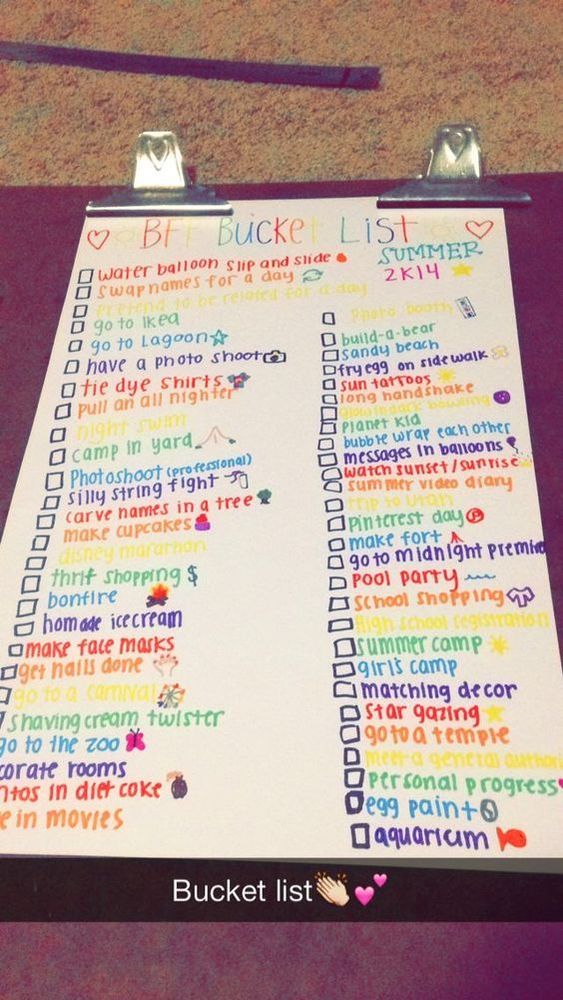 BFF Bucket List
SUMMER
2K14
water balloon slip and slide
swap names for a day
Pretend to be related for a day
go to Ikea
go to Lagoon
have a photo shoot
tie dye shirts
pull an all nighter
night swim
camp in yard
Photoshoot (professional)
silly string fight
carve names in a tree
make cupcakes
disney marathon
thrift shopping $
bonfire
homade icecream
make face masks
get nails done
go to a carnival
shaving cream twister
go to the zoo
corate rooms
ntos in diet coke
e in movies
Photo booth
build-a-bear
sandy beach
fry egg on sidewalk
sun tattoos
long handshake
glow in dark bowling
Planet Kid
bubble wrap each other
messages in balloons
watch sunset/sunrise
summer video diary
trip to Utah
pinterest day
make fort
go to midnight premie
Pool party
school shopping
High school registration
summer camp
girls camp
matching decor
star gazing
go to a temple
meet a general authori
personal progress
egg paint
aquarium
Bucket list👏💕